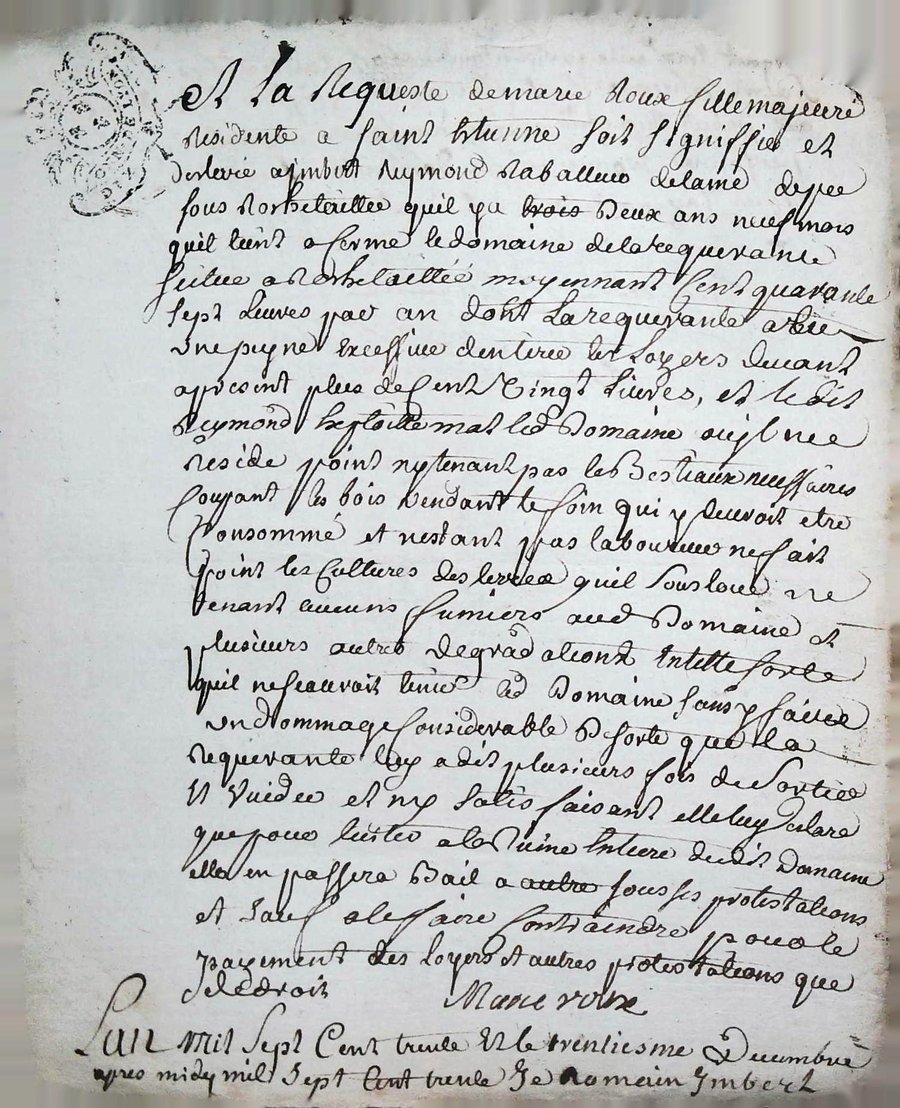 A La Requeste de marie Roux fille majeure
residente a saint Etienne soit signiffié et
declaré a Imbert Reymond
sous Rochetaillée quil y a trois deux ans neuf mois
quil tient a ferme le domaine de la requerante
scitué a Rochetaillée moyennant Cent quarante
sept Livres par an dont La requerante a heu
une peyne excessive dentirer les Loyers devant
apresent plus de Cent Vingt Livres, et ledit
Reymond Exploitte mal led Domaine ou jl ne
reside point ny tenant pas les Bestiaux nessaires
Coupant les bois vendant le foin qui y devroit etre
Consommé et nestant pas laboureur ne fait
point les Cultures des terres quil souslouë ne
tenant aucuns fumiers aud Domaine et
plusieurs autres degradations Entelle sorte
quil ne scauroit tenir led Domaine sans y faire
un dommage Considerable De sorte que la
requerante luy a dit plusieurs fois de sortir
Et Vuider et ny satisfaisant elle luy declare
que pour Eviter a la Ruine Entiere dudit Domaine
elle en passera Bail a autre sous ses protestations
et sauf a le faire Contraindre pour le
payement des loyers et autres protestations que
de droit
Marie roux
Lan mil Sept Cent trente Et le trentiesme Decembre
apres midy mil Sept Cent trente Je Romain Imbert